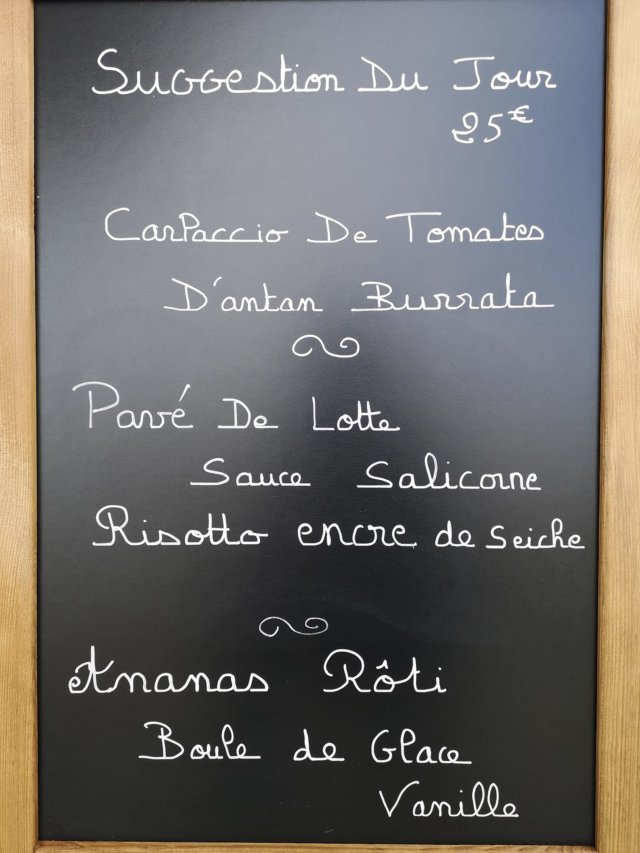 Suggestion Du Jour
25€
Carpaccio De Tomates
D'antan Burrata
Pavé De Lotte
Sauce Salicorne
Risotto encre de Seiche
Ananas Rôti
Boule de Glace
Vanille